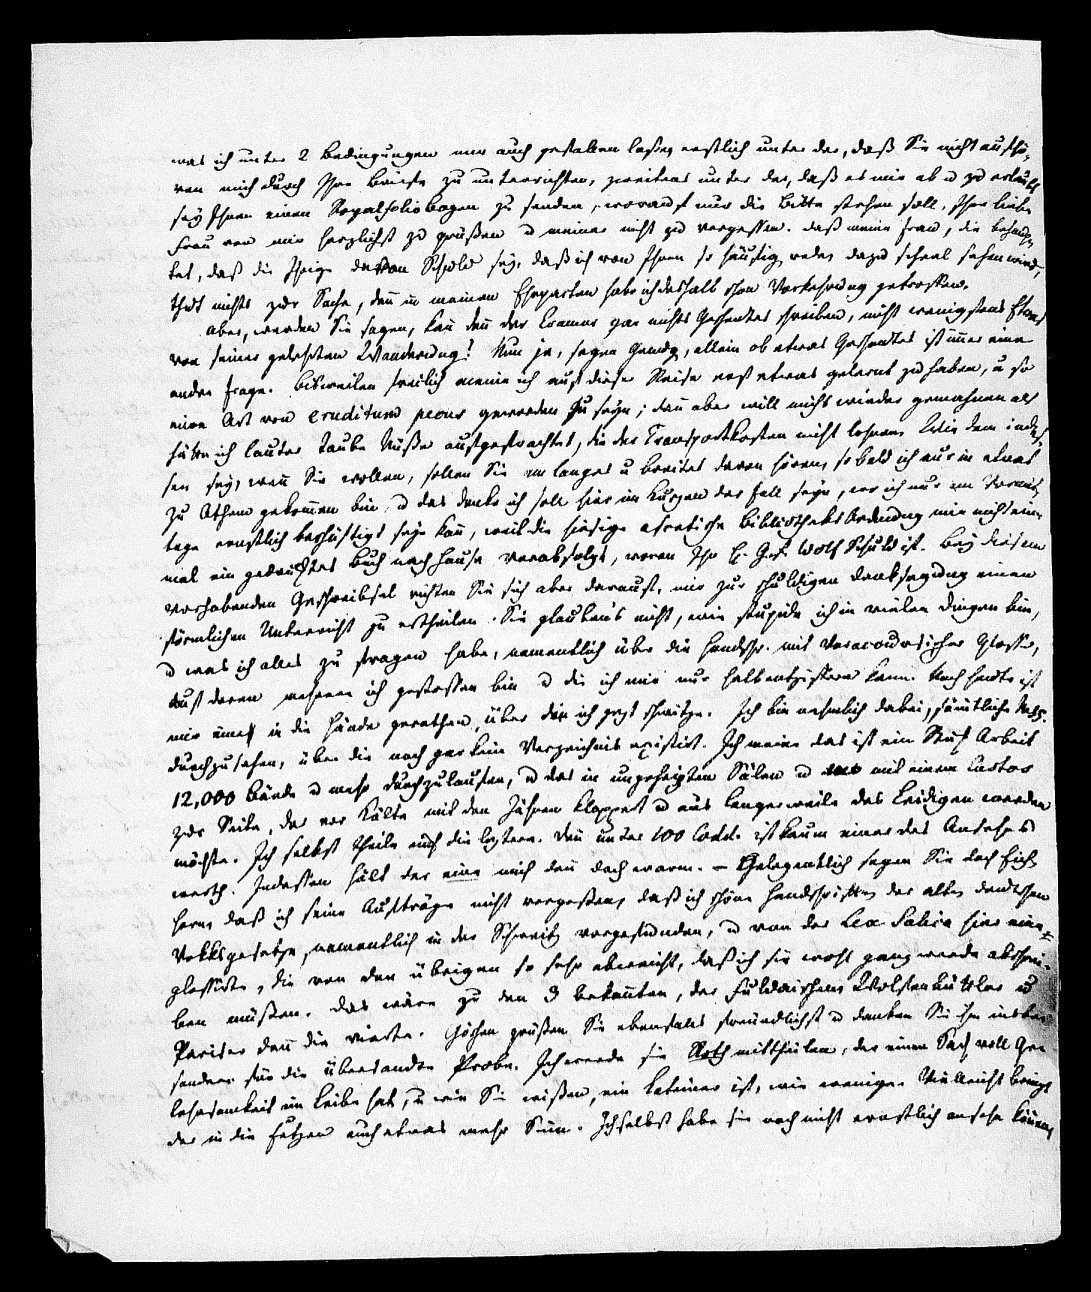 was ich unter 2 Bedingungen nur auch gefallen laße, erstlich unter der, daß Sie nicht aufhö-
ren mich durch Ihre Briefe zu unterrichten, zweitens unter der, daß es mir ab u zu erlaubt
sey Ihnen einen Royalfoliobogen zu senden, worauf nur die Bitte stehen soll, Ihre liebe
Frau von mir herzlichst zu grüßen u meiner nicht zu vergessen. daß meine Frau, die behaup-
tet, daß die Ihrige daran Schuld sey, daß ich von Ihnen so häufig rede, dazu scheel sehen wird,
thut nichts zur Sache, deñ in meinen Ehepacten habe ich deshalb schon Vorkehrung getroffen.
Aber, werden Sie sagen, kañ deñ der Cramer gar nichts Gescheutes schreiben, nicht wenigstens Etwas
von seiner gelehrten Wanderung? Nun ja, sagen genug, allein ob etwas Gescheutes ist im̃er eine
andre Frage. Bisweilen freilich meine ich auf dieser Reise erst etwas gelernt zu haben, u so
eine Art von eruditum pecus geworden zu seyn; dañ aber will michs wieder gemahnen als
hätte ich lauter taube Nüße aufgefrachtet, die der Transportkosten nicht lohnen. Wie dem indes-
sen sey, weñ Sie wollen, sollen Sie ein langes u breites davon hören, so bald ich nur in etwas
zu Athem gekom̃en bin, u das denke ich soll hier im Kurzen der Fall seyn, wo ich nur im Vormit-
tage ernstlich beschäftigt seyn kañ, weil die hiesige exotische Bibliotheks Ordnung mir nicht ein-
mal ein gedrucktes Buch nach Hause verabfolgt, woran Ihr H. Geh. Wolf Schuld ist. Bey diesem
vorhabenden Geschreibsel richten Sie sich aber darauf, mir zur schuldigen Danksagung einen
förmlichen Unterricht zu ertheilen. Sie glauben's nicht, wie stupide ich in vielen Dingen bin,
u was ich alles zu fragen habe, namentlich über die Handschr. mit Voraccursischer Glosse,
auf deren mehrere ich gestossen bin u die ich mir nur halb entziffern kann. Noch heute ist
mir eine in die Hände gerathen, über die ich jezt schwitze. Ich bin nehmlich dabei, säm̃tliche Mss.
durchzusehen, über die noch gar kein Verzeichnis existirt. Ich meine das ist ein Stück Arbeit
12,000 Bände u mehr durchzulaufen, u das in ungeheizten Sälen u mit einem Custos
zur Seite, der vor Kälte mit den Zähnen klappert u aus langerweile des Leidigen werden
möchte. Ich selbst theile auch die leztere. Deñ unter 100 Codd. ist kaum einer des Ansehens
werth. Indessen hält der eine mich deñ doch warm. – Gelegentlich sagen Sie doch Eich-
horn, daß ich seine Aufträge nicht vergessen, daß ich schöne Handschriften der alten deutschen
Volksgesetze, namentlich in der Schweitz vorgefunden, u von der Lex Salica hier eine
glossirte, die von den übrigen so sehr abweicht, daß ich sie wohl ganz werde abschrei-
ben müßen. Das wäre zu den 3 bekañten, der Fuldaischen Wolfenbüttler u
Pariser deñ die vierte. Göschen grüßen Sie ebenfalls freundlichst u danken Sie ihm insbe-
sondere für die übersandte Probe. Ich werde sie Roth mittheilen, der einen Sack voll Ge-
lehrsamkeit im Leibe hat, u wie Sie wißen, ein Lateiner ist, wie wenige. Vielleicht bringt
der in die Fetzen auch etwas mehr Siñ. Ich selbst habe sie noch nicht ernstlich ansehn köñen,